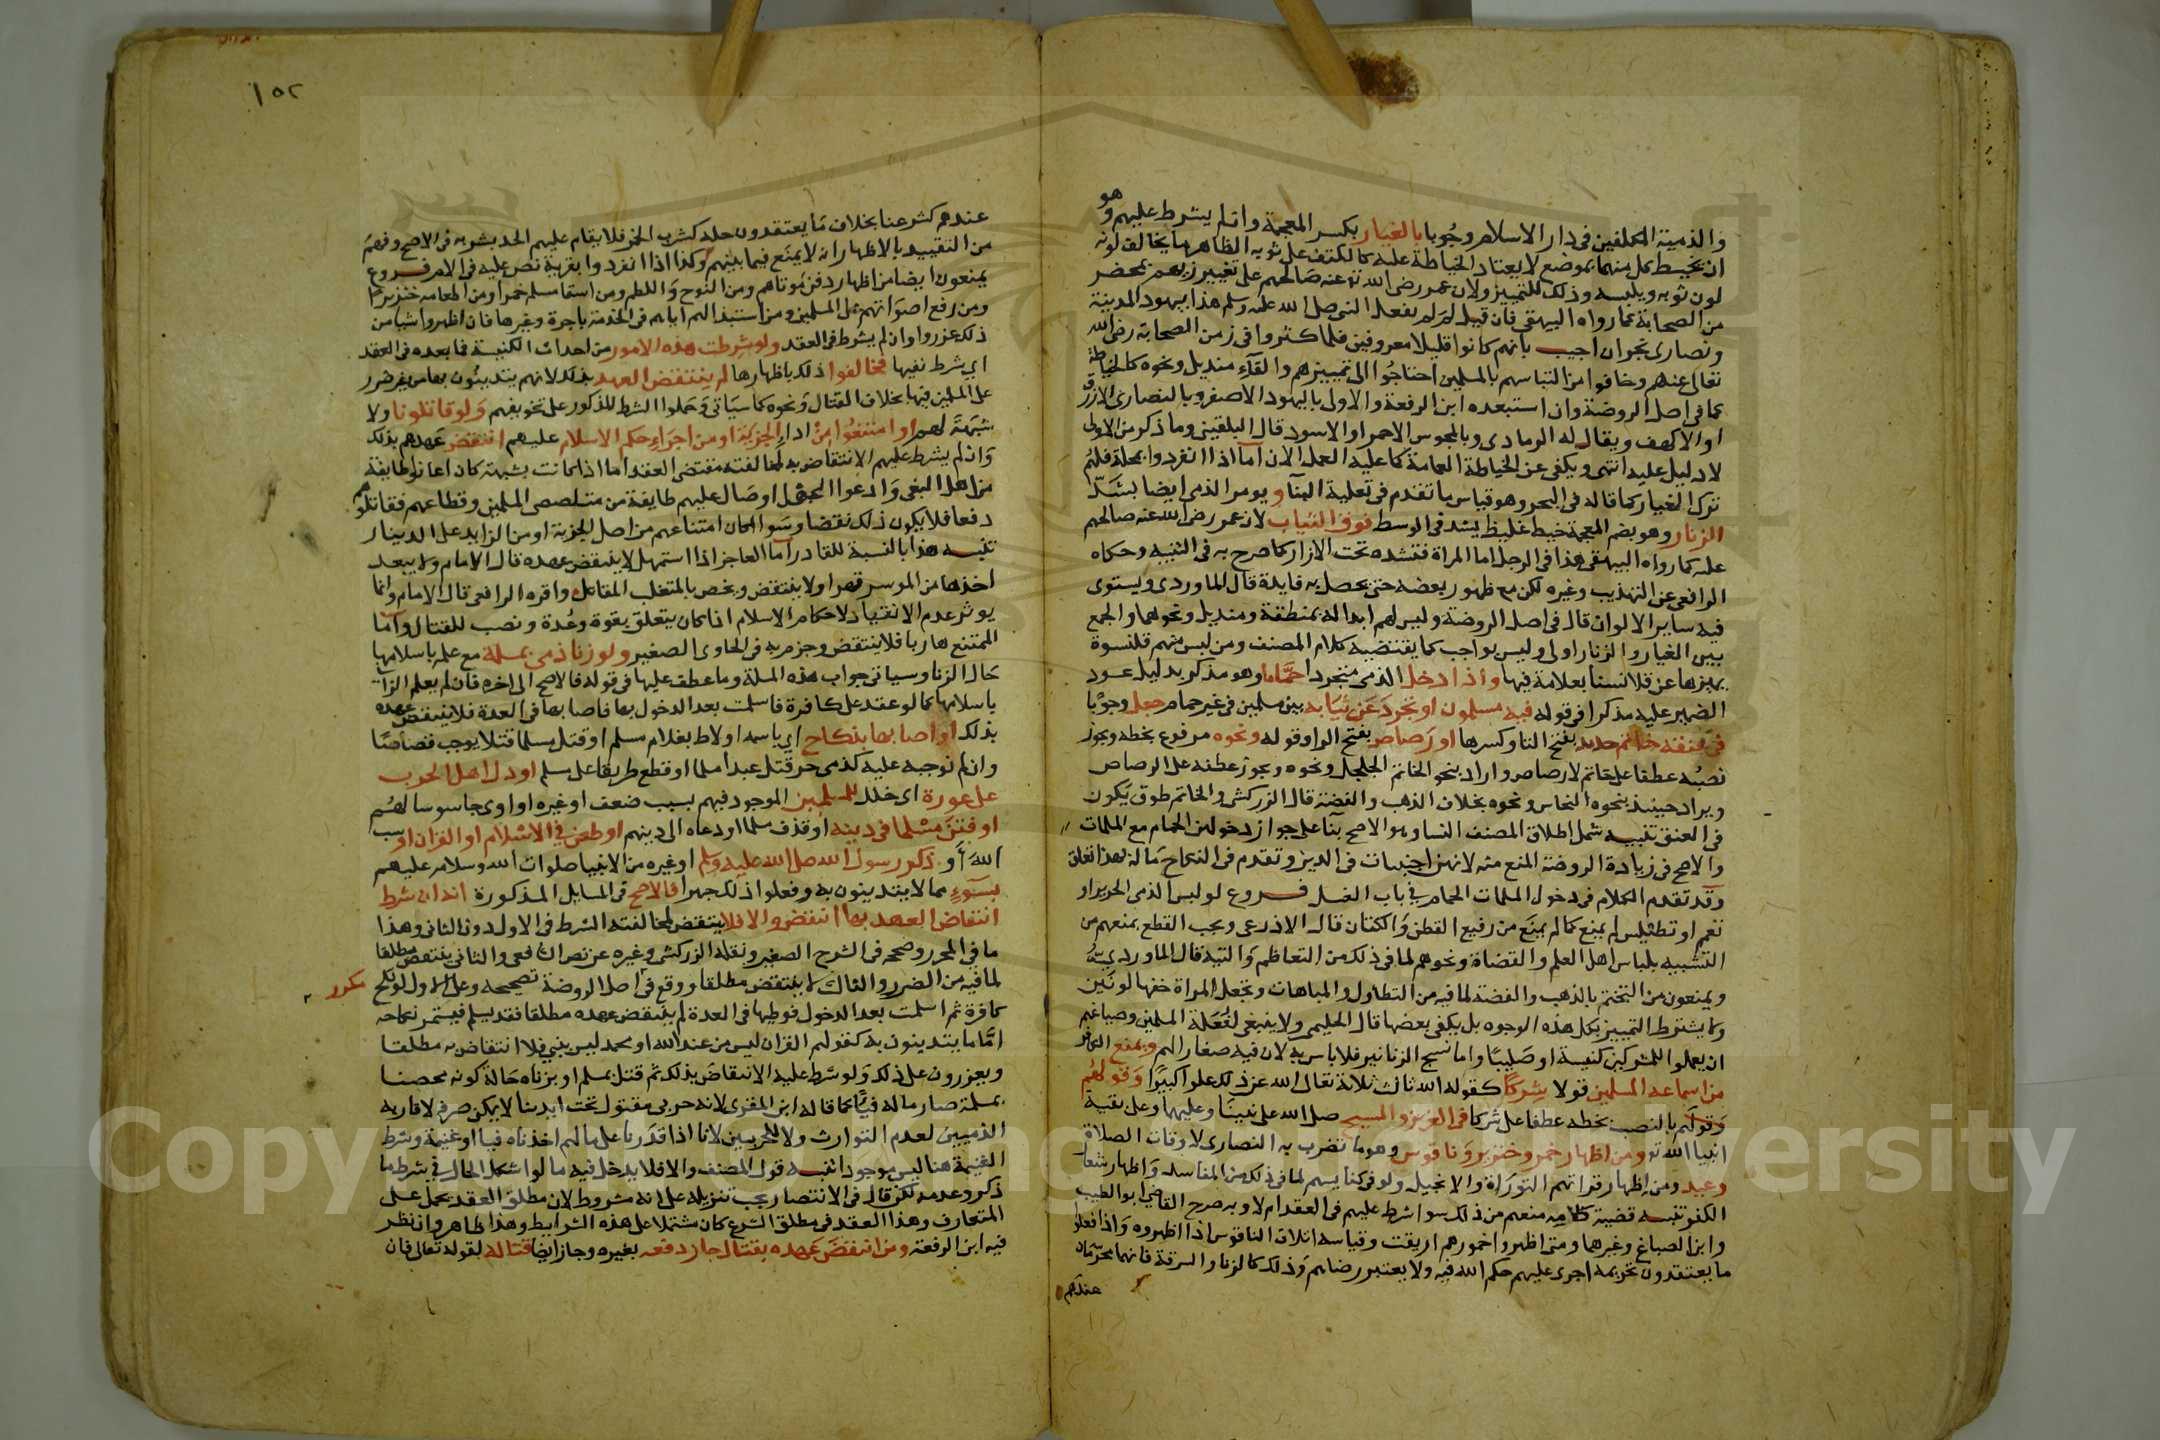 والذمية المكلفين في دار الاسلام وجوبا بالغيار بكسر المعجمة وان لم يشرط عليهم وهو
ان يخيط كل منهما بموضع لا يعتاد الخياطة عليه كالكتف على ثوبه الظاهر ما يخالف لونه
لون ثوبه ويلبسه وذلك للتمييز ولان عمر رضي الله تع عنه صالحهم على تغيير زيهم بمحضر
من الصحابة كما رواه البيهقي فان قيل لم لم يفعل النبي صلى الله عليه وسلم هذا بيهود المدينة
ونصارى نجران اجيب بانهم كانوا قليلا معروفين فلما كثروا في زمن الصحابة رضي الله
تعالى عنهم وخافوا من التباسهم بالمسلمين احتاجوا الى تمييزهم والقاء منديل ونحوه كالخياطة
كما في اصل الروضة وان استبعده ابن الرفعة والاولى باليهود الاصفر وبالنصارى الازرق
او الاكهب ويقال له الرمادي وبالمجوس الاحمر او الاسود قال البلقيني وما ذكر من الاولى
لا دليل عليه انتهى ويكفي عن الخياطة العمامة كما عليه العمل الان اما اذا انفردوا بمحلة فلهم
ترك الغيار كما قاله في البحر وهو قياس ما تقدم في تعلية البنا ويومر الذمي ايضا بشد
الزنار وهو بضم المعجمة خيط غليظ يشد في الوسط فوق الثياب لان عمر رضي الله عنه صالحهم
عليه كما رواه البيهقي هذا في الرجل اما المراة فتشده تحت الازار كما صرح به في التنبيه وحكاه
الرافعي عن التهذيب وغيره لكن مع ظهور بعضه حتى يحصل به فايدة قال الماوردي ويستوي
فيه ساير الالوان قال في اصل الروضة وليس لهم ابداله بمنطقة ومنديل ونحوهما والجمع
بين الغيار والزنار اولى وليس بواجب كما يقتضيه كلام المصنف ومن لبس منهم قلنسوة
يميزها عن قلانسنا بعلامة فيها واذا دخل الذمي متجردا حماما وهو مذكر بدليل عود
الضمير عليه مذكرا في قوله فيه مسلمون او تجرد عن ثيابه بين مسلمين في غير حمام جعل وجوبا
في عنقه خاتم حديد بفتح التا وكسرها او رصاص بفتح الرا وقوله ونحوه مرفوع بخطه ويجوز
نصبه عطفا على خاتم لا رصاص واراد بنحو الخاتم الجلجل ونحوه ويجوز عطفه على الرصاص
ويراد حينيذ بنحوه النحاس ونحوه بخلاف الذهب والفضة قال الزركشي والخاتم طوق يكون
في العنق تنبيه شمل اطلاق المصنف النسا وهو الاصح بنا على جواز دخولهن الحمام مع المسلمات
والاصح في زيادة الروضة المنع منه لانهن اجنبيات في الدين وتقدم في النكاح ما له بهذا تعلق
وقد تقدم الكلام في دخول المسلمات الحمام في باب الغسل فروع لو لبس الذمي الحرير او
تعمم او تطيلس لم يمنع كما لم يمنع من رفيع القطن والكتان قال الاذرعي ويجب القطع بمنعهم من
التشبيه بلباس اهل العلم والقضاة ونحوهم لما في ذلك من التعاظم والتيه قال الماوردي
ويمنعون من التختم بالذهب والفضة لما فيه من التطاول والمباهات وتجعل المراة خفها لونين
ولا يشترط التمييز بكل هذه الوجوه بل يكفي بعضها قال الحليمي ولا ينبغي لفعلة المسلمين وصياغهم
ان يعملوا للمشركين كنيسة او صليبا واما نسج الزنانير فلا باس به لان فيه صغارا لهم ويمنع الكافر
من اسماعه المسلمين قولا شركا كقوله الله ثالث ثلاثة تعالى الله عن ذلك علوا كبيرا وقولهم
وقولهم بالنصب بخطه عطفا على شركا في العزير والمسيح صلى الله على نبينا وعليهما وعلى بقية
انبيا الله تع ومن اظهار خمر وخنزير وناقوس وهو ما تضرب به النصارى لاوقات الصلاة
وعيد ومن اظهار قراتهم التوراة والانجيل ولو في كنايسهم لما في ذلك من المفاسد واظهار شعار
الكفر تنبيه قضية كلامه منعهم من ذلك سوا شرط عليهم في العقد ام لا وبه صرح القاضي ابو الطيب
وابن الصباغ وغيرهما ومتى اظهروا خمورهم اريقت وقياسه اتلاف الناقوس اذا اظهروه واذا فعلوا
ما يعتقدون تحريمه اجرى عليهم حكم الله فيه ولا يعتبر رضاهم وذلك كالزنا والسرقة فانهما محرمان
عندهم
١٥٢
عندهم كشرعنا بخلاف ما يعتقدون حله كشرب الخمر فلا يقام عليهم الحد بشربه في الاصح وفهم
من التقييد بالاظهار انه لا يمنع فيما بينهم وكذا اذا انفردوا بقرية نص عليه في الام فروع
يمنعون ايضا من اظهار دفن موتاهم ومن النوح واللطم ومن اسقا مسلم خمرا ومن اطعامه خنزيرا
ومن رفع اصواتهم على المسلمين ومن استبذالهم اياهم في الخدمة باجرة وغيرها فان اظهروا شيا من
ذلك عزروا وان لم يشرط في العقد ولو شرطت هذه الامور من احداث الكنيسة فما بعده في العقد
اي شرط نفيها فخالفوا ذلك باظهارها لم ينتقض العهد بذلك لانهم يتدينون بها من غير ضرر
على المسلمين فيها بخلاف القتال ونحوه كما سياتي وحملوا الشرط المذكور على تخويفهم ولو قاتلونا ولا
شبهة لهم او امتنعوا من اداء الجزية او من اجراء حكم الاسلام عليهم انتقض عهدهم بذلك
وان لم يشرط عليهم الانتقاض به لمخالفته مقتضى العقد اما اذا كانت بشبهة كان اعانوا طايفة
من اهل البغي وادعوا الجهل او صال عليهم طايفة من متلصصي المسلمين وقطاعهم فقاتلوهم
دفعا فلا يكون ذلك نقضا وسوا اكان امتناعهم من اصل الجزية او من الزايد على الدينار
تنبيه هذا بالنسبة للقادر اما العاجز اذا استمهل لا ينتقض عهده قال الامام ولا يبعد
اخذها من الموسر قهرا ولا ينتقض ويخص بالمتغلب المقاتل واقره الرافعي قال الامام وانما
يوثر عدم الانقياد لاحكام الاسلام اذا كان يتعلق بقوة وعدة ونصب للقتال واما
الممتنع هاربا فلا ينتقض وجزم به في الحاوي الصغير ولو زنا ذمي بمسلمة مع علمه باسلامها
حال الزنا وسياتي جواب هذه المسلة وما عطف عليها في قوله فالاصح الى اخره فان لم يعلم الزاني
باسلامها كما لو عقد على كافرة فاسلمت بعد الدخول بها فاصابها في العدة فلا ينتقض عهده
بذلك او اصابها بنكاح اي باسمه او لاط بغلام مسلم او قتل مسلما قتلا يوجب قصاصا
وان لم نوجبه عليه كذمي حر قتل عبدا مسلما او قطع طريقا على مسلم او دل اهل الحرب
على عورة اي خلل للمسلمين الموجود فيهم بسبب ضعف او غيره او اوى جاسوسا لهم
او فتن مسلما في دينه او قذف مسلما او دعاه الى دينهم او طعن في الاسلام او القران او سب
الله او ذكر رسول الله صلى الله عليه وسلم او غيره من الانبيا صلوات الله وسلامه عليهم
بسوء مما لا يتدينون به وفعلوا ذلك جهرا فالاصح في المسايل المذكورة انه ان شرط
انتقاض العهد بها انتقض والا فلا ينتقض لمخالفته الشرط في الاول دون الثاني وهذا
ما في المحرر وصححه في الشرح الصغير ونقله الزركشي وغيره عن نص الشافعي والثاني ينتقض مطلقا
لما فيه من الضرر والثالث لا ينتقض مطلقا ووقع في اصل الروضة تصحيحه وعلى الاول لو نكح
مكرر
كافرة ثم اسلمت بعد الدخول فوطيها في العدة لم ينتقض عهده مطلقا فقد يسلم فيستمر نكاحه
اما ما يتدينون به كقولهم القران ليس من عند الله او محمد ليس بنبي فلا انتقاض به مطلقا
ويعزرون على ذلك ولو شرط عليه الانتقاض بذلك ثم قتل بمسلم او بزناه حالة كونه محصنا
بمسلمة صار ماله فيا كما قاله ابن المقري لانه حربي مقتول تحت ايدينا لا يمكن صرفه لاقاربه
الذميين لعدم التوارث ولا للحربيين لانا اذا قدرنا على مالهم اخذناه فيا او غنيمة وشرط
الغنيمة هنا ليس موجودا تنبيه قول المصنف والا فلا يدخل فيه ما لو اشكل الحال في شرط ما
ذكر وعدمه لكن قال في الانتصار يجب تنزيله على انه مشروط لان مطلق العقد يحمل على
المتعارف وهذا العقد في مطلق الشرع كان مشتملا على هذه الشرايط وهذا ظاهر وان نظر
فيه ابن الرفعة ومن انتقض عهده بقتال جاز دفعه بغيره وجاز ايضا قتاله لقوله تعالى فان
Copyright © King Saud University